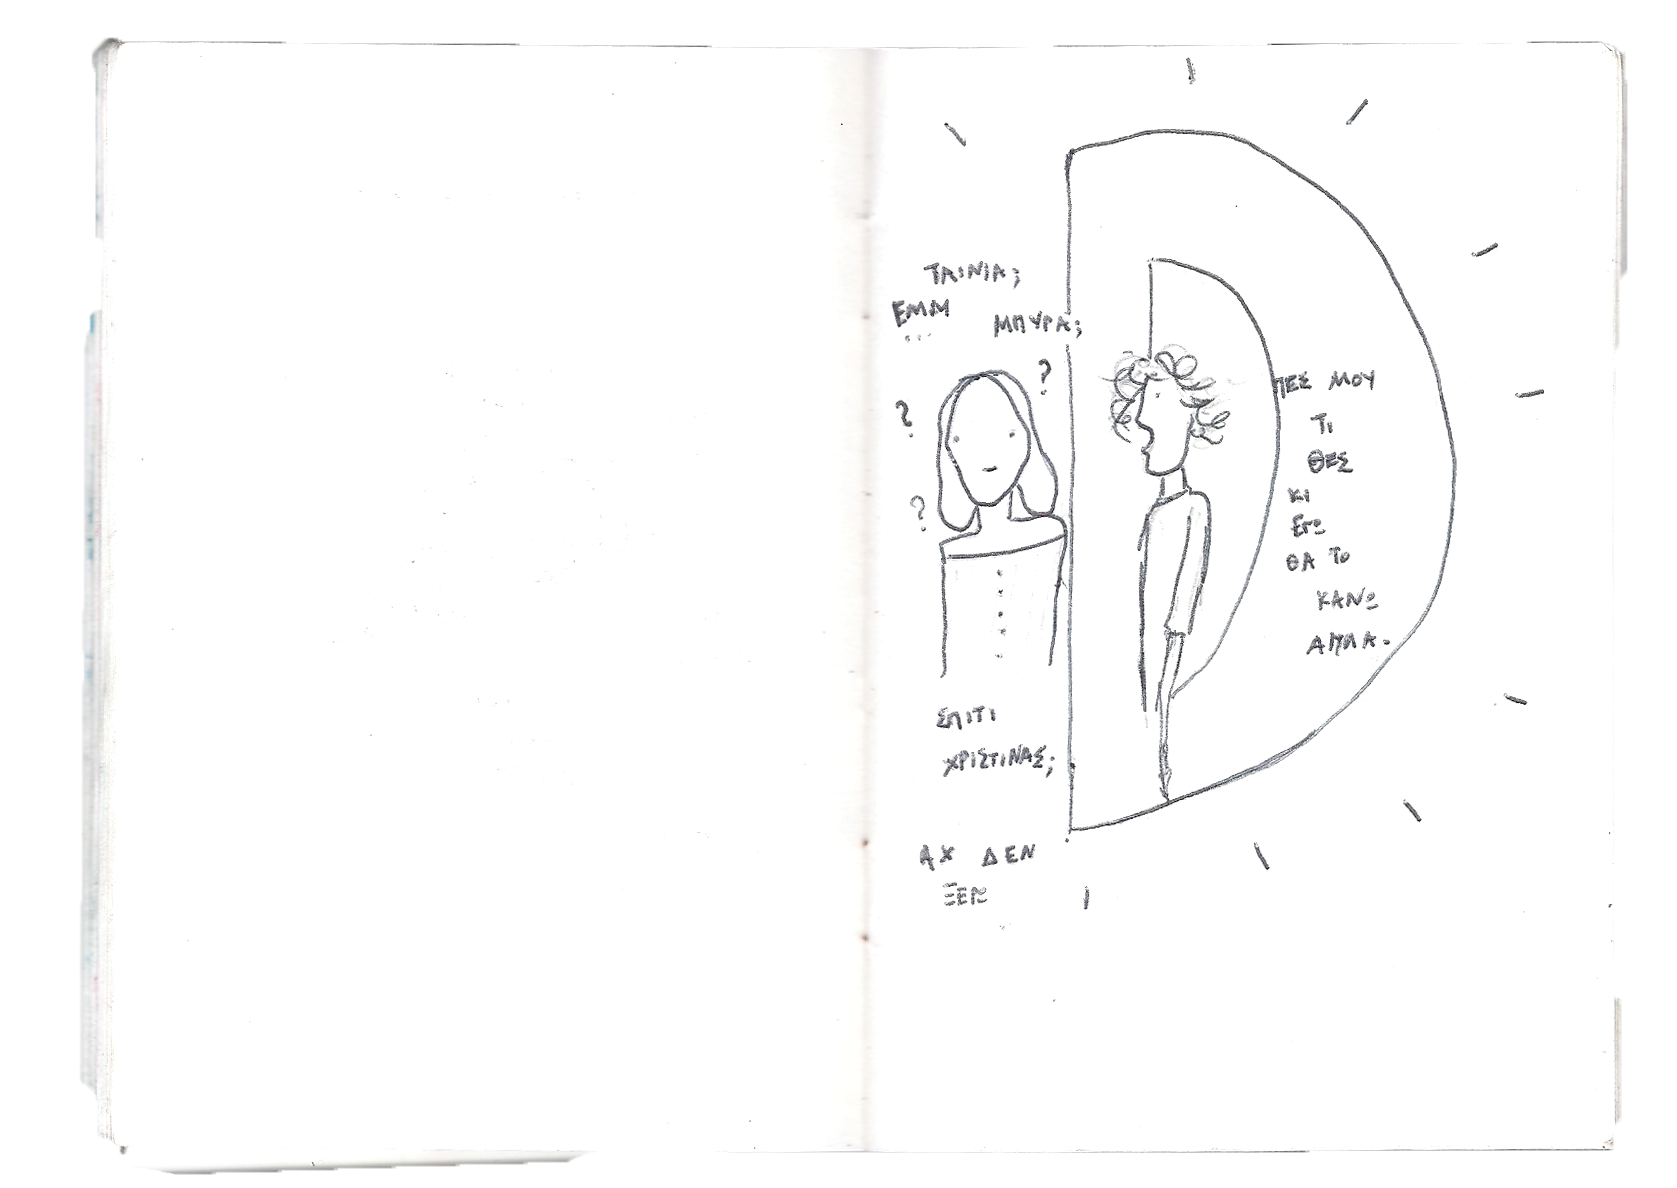 ΤΑΙΝΙΑ;
ΕΜΜ
...
ΜΠΥΡΑ;
?
?
?
ΣΠΙΤΙ
ΧΡΙΣΤΙΝΑΣ;
ΑΧ ΔΕΝ
ΞΕΡΩ
ΠΕΣ ΜΟΥ
ΤΙ
ΘΕΣ
ΚΙ
ΕΓΩ
ΘΑ ΤΟ
ΚΑΝΩ
ΑΠΛΑ.